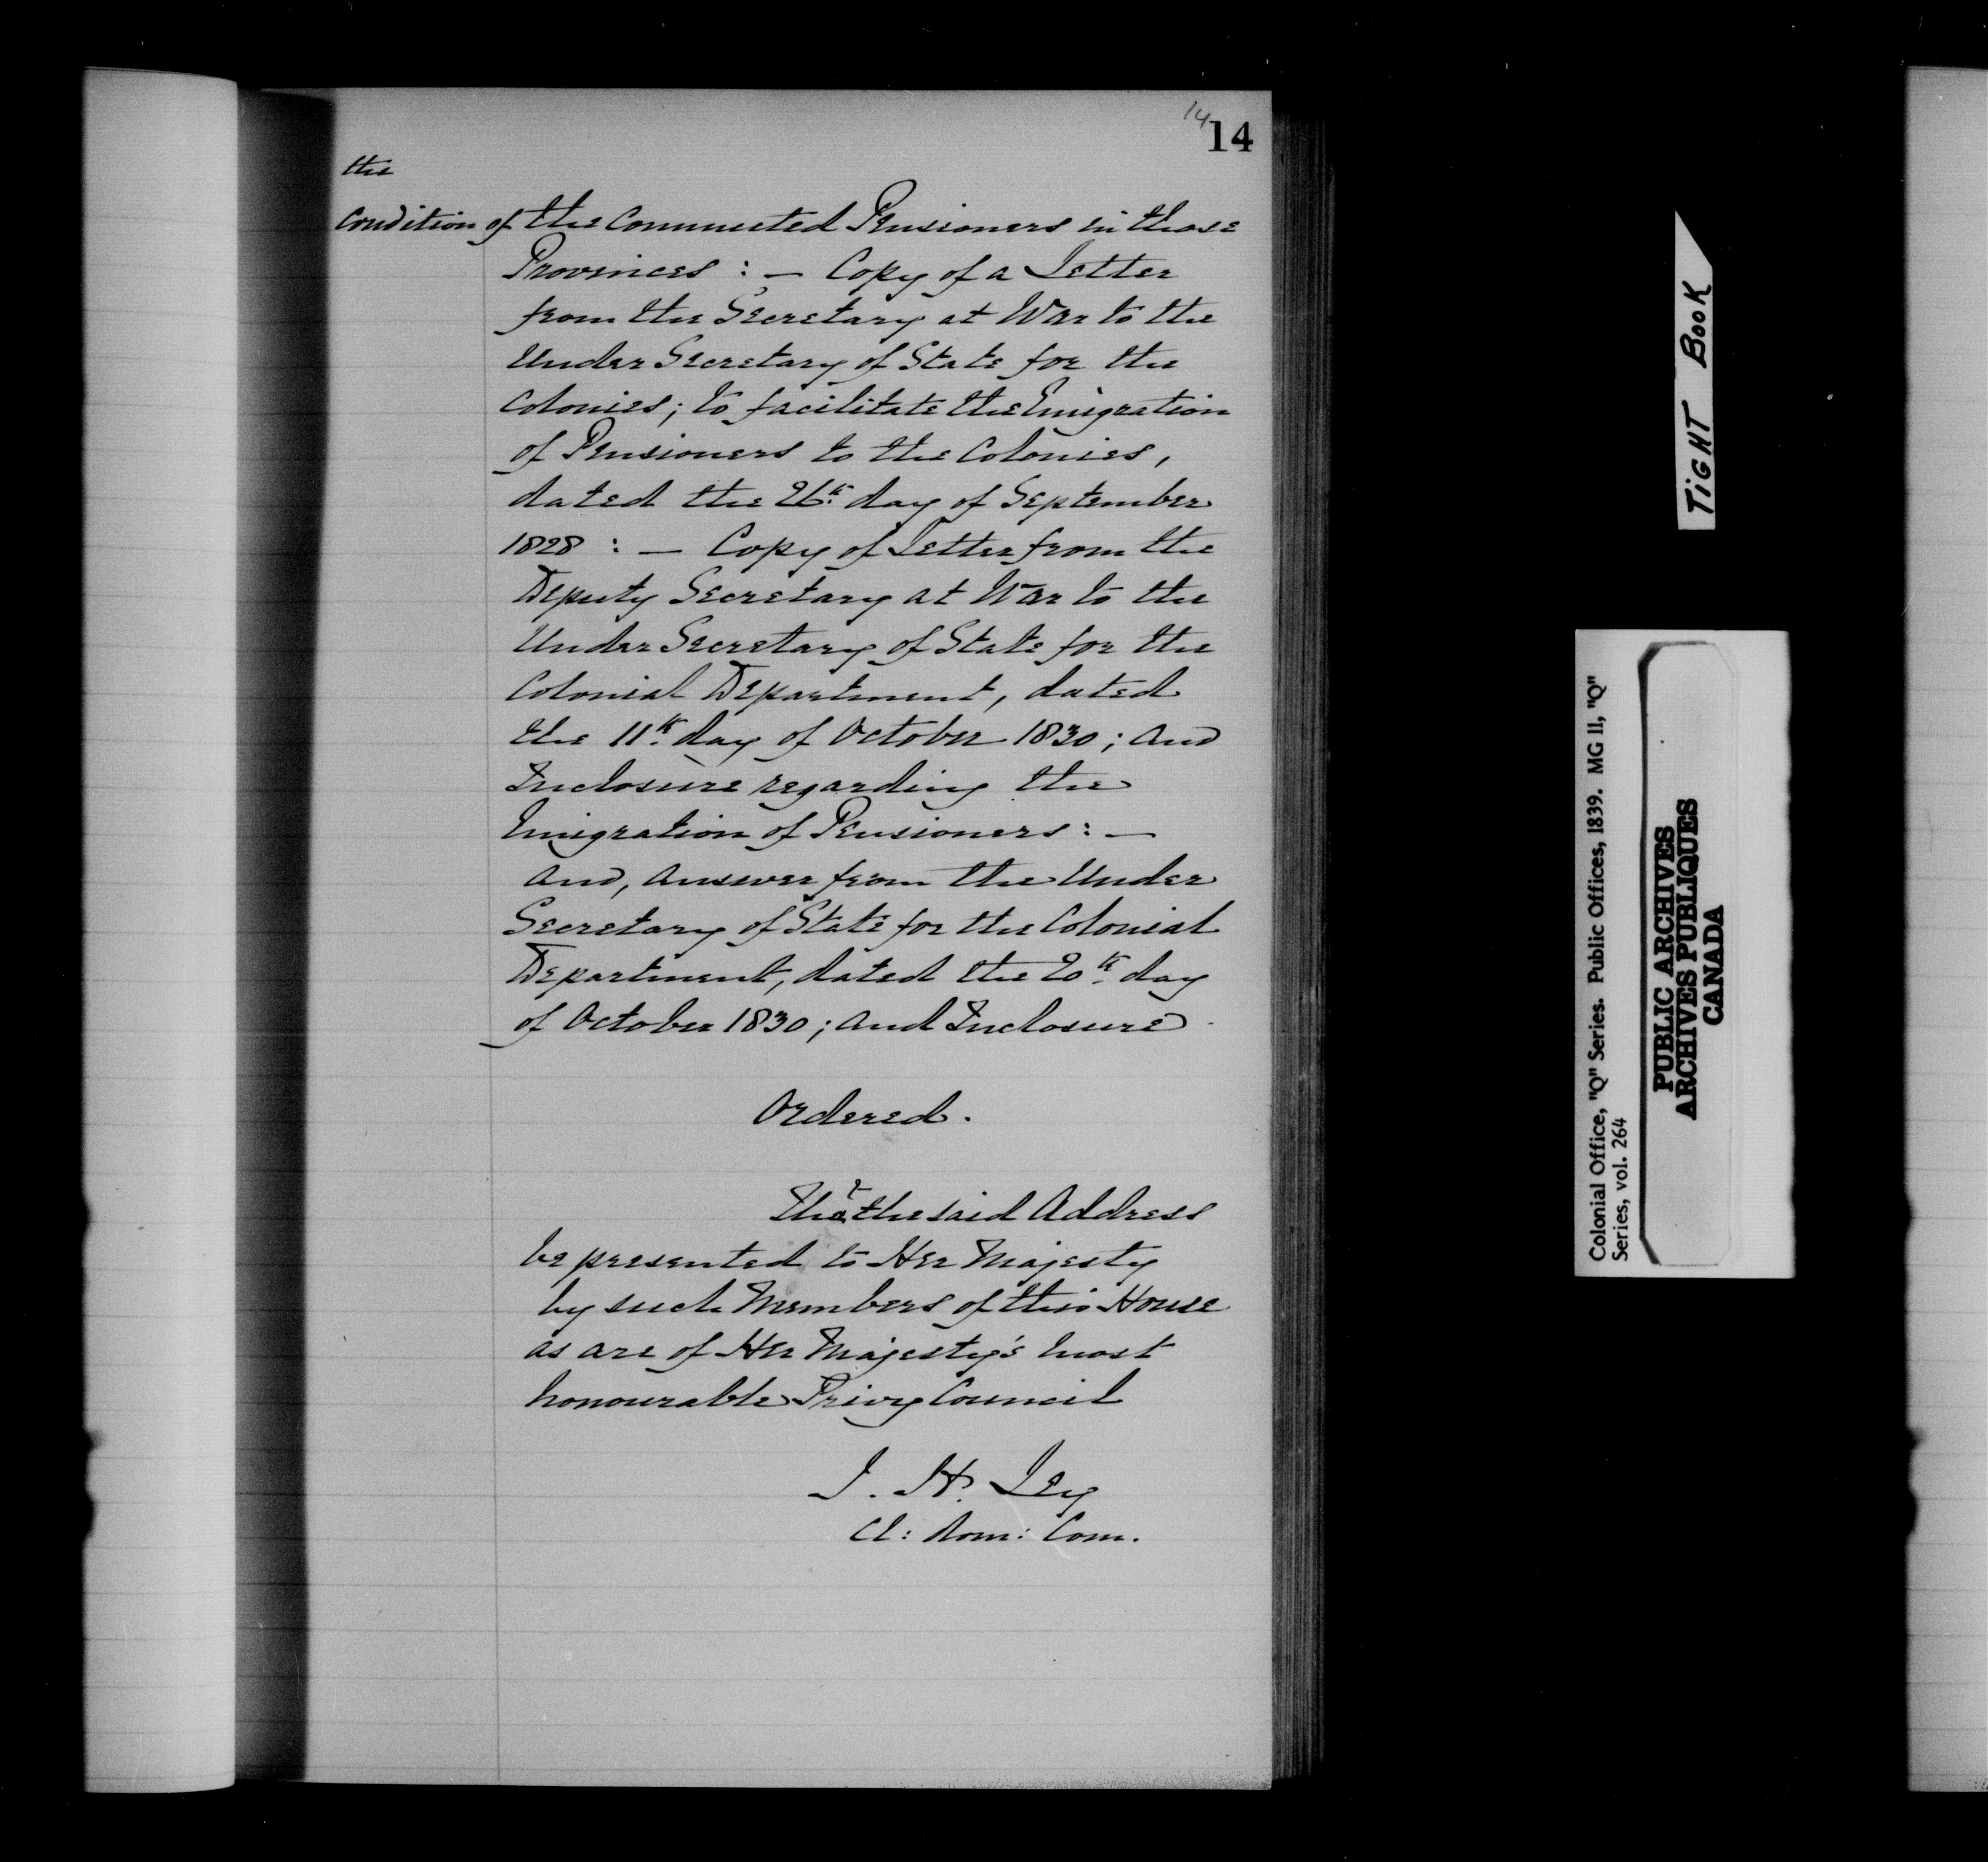 14
14
the
Condition of the Commuted Pensioners in those
Provinces : — Copy of a Letter
from the Secretary at War to the
Under Secretary of State for the
Colonies; to facilitate the Emigration
of Pensioners to the Colonies,
dated the 26th day of September
1828 : — Copy of Letter from the
Deputy Secretary at War to the
Under Secretary of State for the
Colonial Department, dated
the 11th day of October 1830; and
Inclosure regarding the
Emigration of Pensioners : —
And, Answer from the Under
Secretary of State for the Colonial
Department, dated the 20th day
of October 1830; and Inclosure
Ordered.
That the said Address
be presented to Her Majesty
by such Members of this House
as are of Her Majesty's most
honourable Privy Council
J. H. Ley
Cl: Dom: Com.
TIGHT BOOK
Colonial Office, "Q" Series. Public Offices, 1839. MG 11, "Q"
Series, vol. 264
PUBLIC ARCHIVES
ARCHIVES PUBLIQUES
CANADA